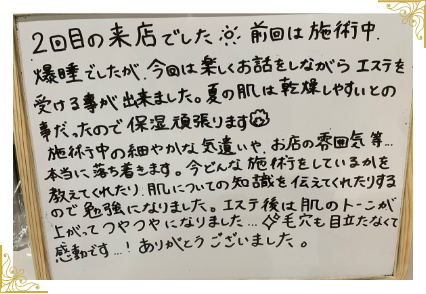 2回目の来店でした☀ 前回は施術中.
爆睡でしたが、今回は楽しくお話をしながらエステを
受ける事が出来ました。夏の肌は乾燥しやすいとの
事だったので保湿頑張ります
施術中の細やかな気遣いや、お店の雰囲気等…
本当に落ち着きます。今どんな施術をしているかを
教えてくれたり、肌についての知識を伝えてくれたりする
ので勉強になりました。エステ後は肌のトーンが
上がってつやつやになりました…✧毛穴も目立たなくて
感動です…！ありがとうございました。